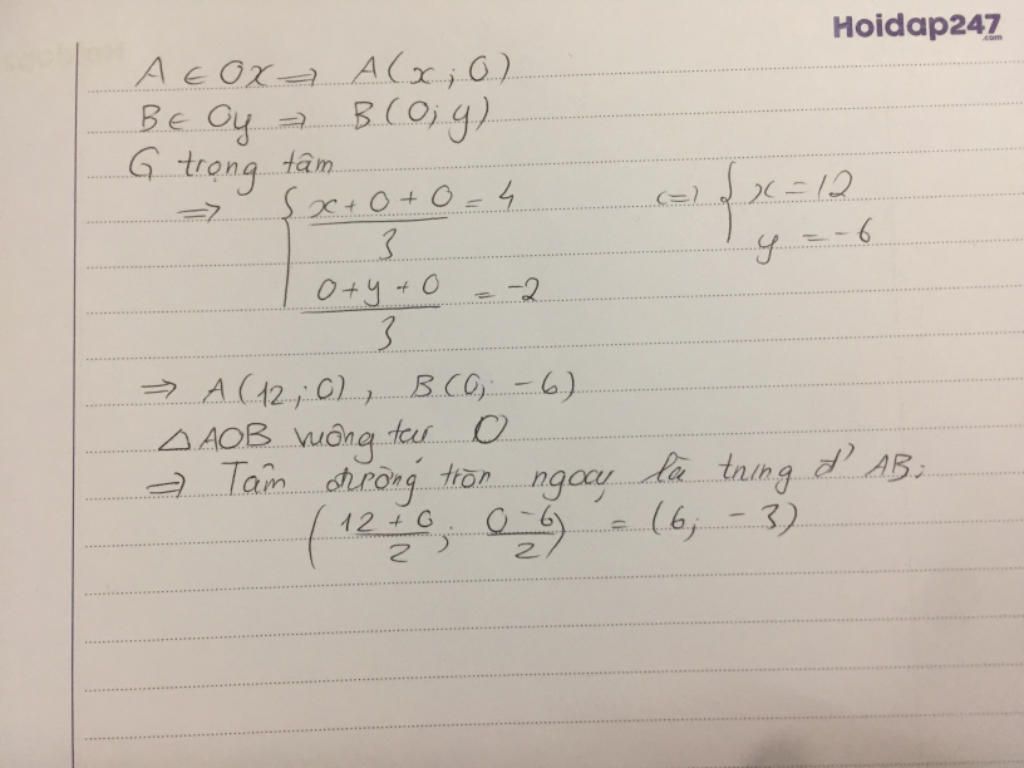 Hoidap247
.com
A ∈ Ox => A(x; 0)
B ∈ Oy => B(0; y)
G trọng tâm
=> { (x + 0 + 0)/3 = 4 <=> { x = 12
(0 + y + 0)/3 = -2 y = -6
=> A(12; 0), B(0; -6)
△AOB vuông tại O
=> Tâm đường tròn ngoại là trung đ' AB:
((12 + 0)/2; (0 - 6)/2) = (6; -3)